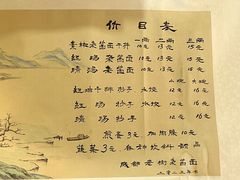 价目表
一两 二两 三两
素椒杂酱面 10元 13元 15元
红汤杂酱面 10元 13元 15元
清汤杂酱面 13元 15元
小碗 大碗
红油干拌抄手 水饺 12元 15元
红汤抄手 水饺 12元 15元
清汤抄手 12元 15元
煎蛋3元 加肉臊10元
蔬菜3元 各种饮料
成都老街杂酱面
二〇二三年